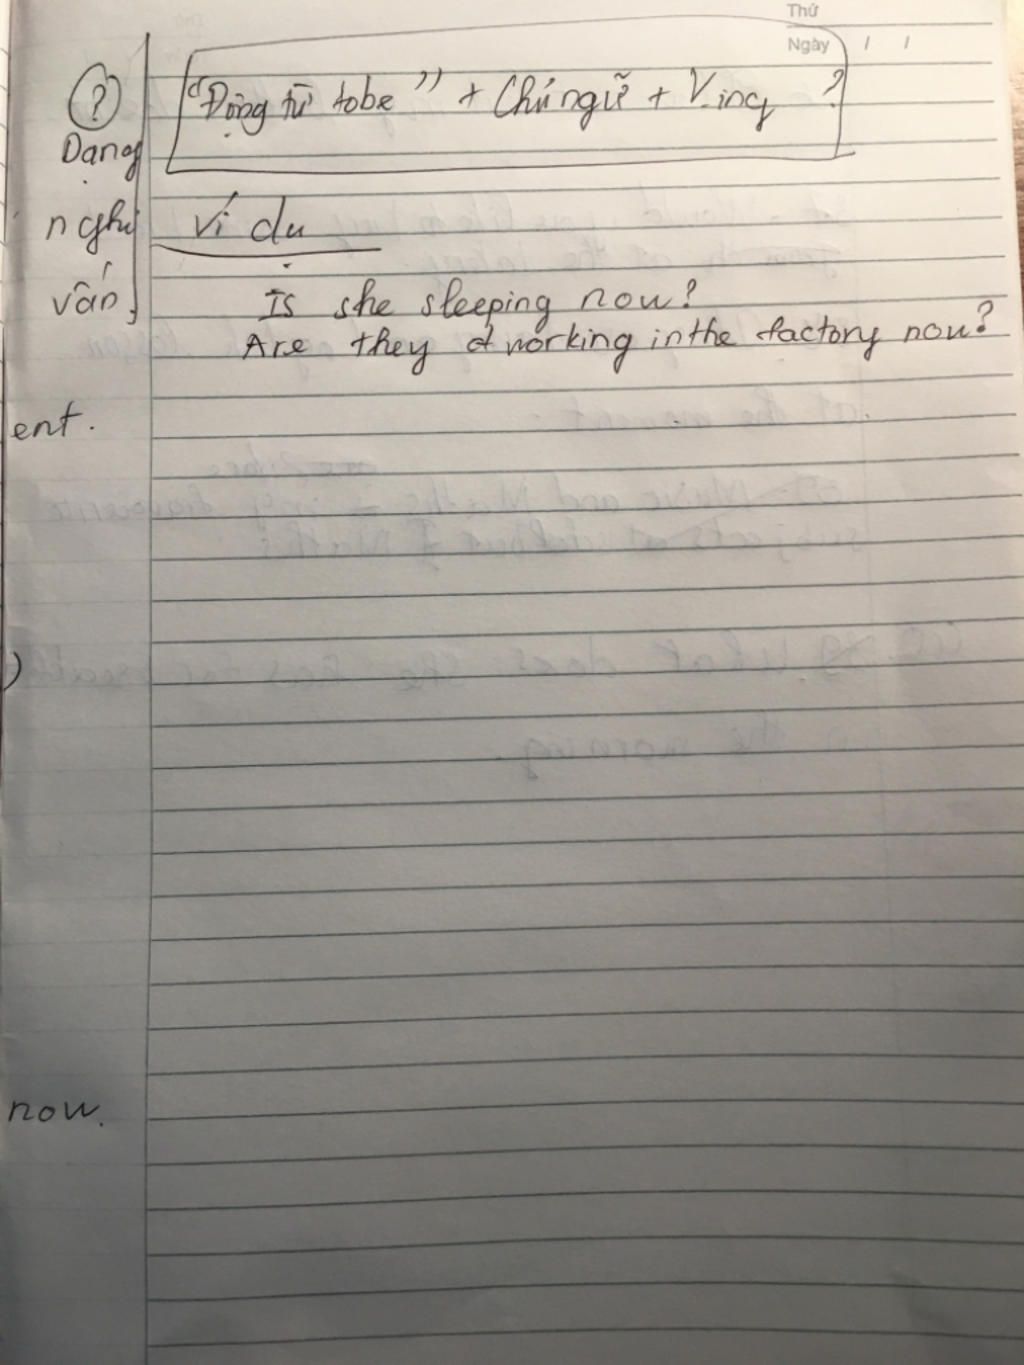 Thứ
Ngày / /
? "Động từ tobe" + Chủ ngữ + V.ing ?
Dạng
nghi ví dụ
vấn
Is she sleeping now?
Are they working in the factory now?
ent.
)
now.